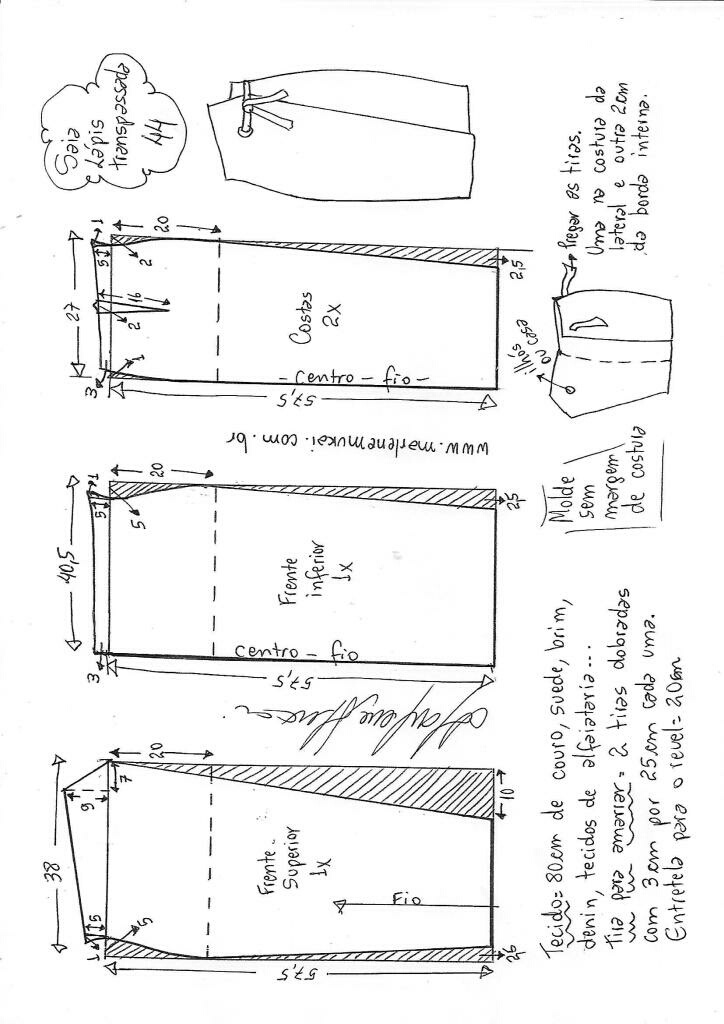 38
9
7
20
5
1
5
57,5
Frente
Superior
1x
Fio
10
2,5
40,5
1
5
20
5
3
57,5
Frente
inferior
1x
centro - fio
2,5
www.marlenemukai.com.br
27
1
5
20
2
16
2
1
3
57,5
Costas
2x
- centro - fio -
2,5
Saia
Lápis
transpassada
44
Tecido= 80cm de couro, suede, brim,
denin, tecidos de alfaiataria...
Tira para amarrar= 2 tiras dobradas
com 3cm por 25cm cada uma.
Entretela para o revel= 20cm
Molde
sem
margem
de costura
ilhós
ou casa
Pregar as tiras.
Uma na costura da
lateral e outra 2cm
da borda interna.